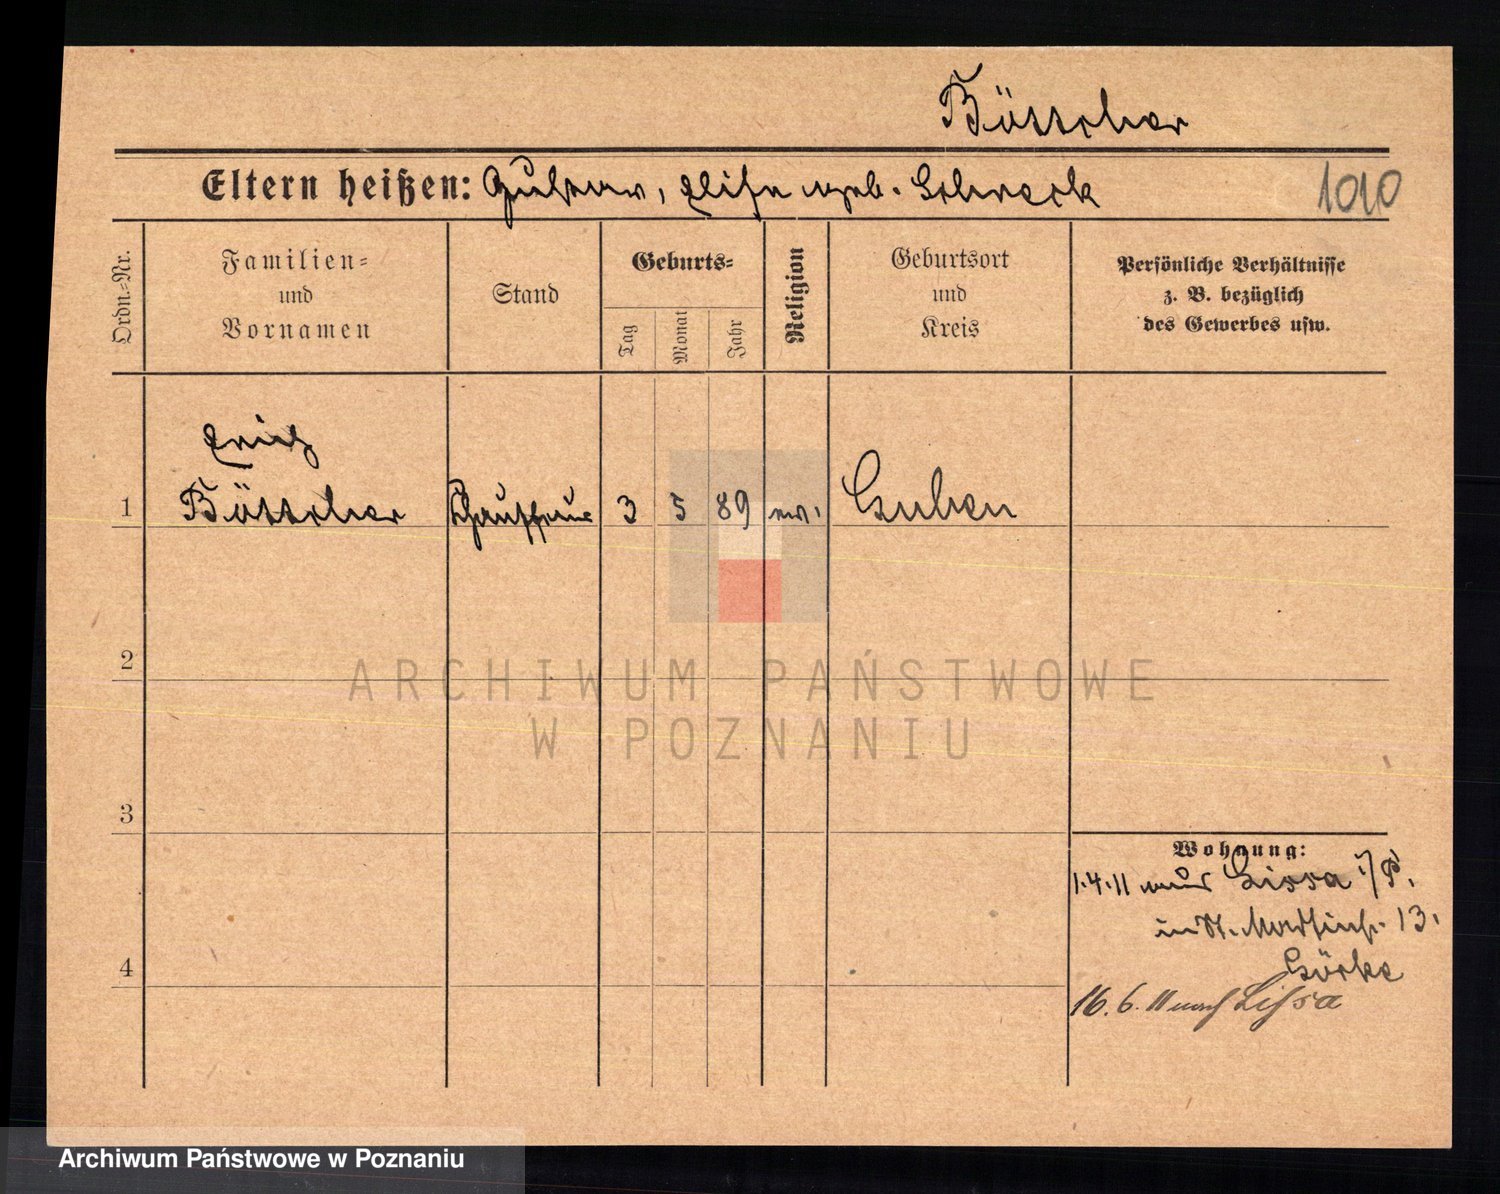 Böttcher
Eltern heißen: Gustav, Elise geb. Schreck
1010
Ordn.-Nr.
Familien-
und
Vornamen
Stand
Geburts-
Tag
Monat
Jahr
Religion
Geburtsort
und
Kreis
Persönliche Verhältnisse
z. B. bezüglich
des Gewerbes usw.
Erich
1 Böttcher Chauffeur 3 5 89 ev. Guben
2
3
4
Wohnung:
1.4.11 aus Lissa i/P.
in St. Martinstr. 13.
Görke
16.6.11 nach Lissa
ARCHIWUM PAŃSTWOWE
W POZNANIU
Archiwum Państwowe w Poznaniu